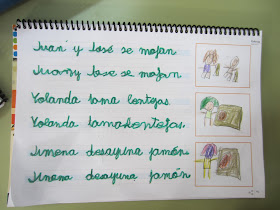 Juan y José se mojan
Juan y Jose se mojan
Yolanda toma lentejas.
Yolanda toma lentejas.
Jimena desayuna jamón
Jimena desayuna jamón